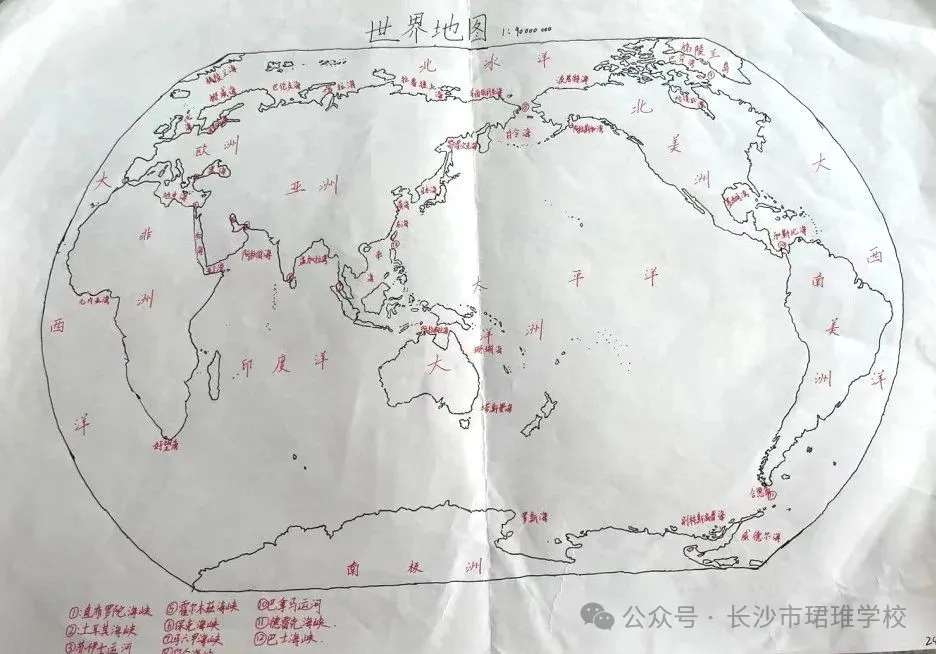 世界地图 1:90000000
北冰洋
格陵兰岛
巴伦支海
拉普捷夫海
波弗特海
挪威海
欧洲
亚洲
北美洲
白令海
大西洋
非洲
红海
阿拉伯海
孟加拉湾
日本海
黄海
东海
南海
太平洋
墨西哥湾
加勒比海
南美洲
几内亚湾
印度洋
大洋洲
珊瑚海
塔斯曼海
大西洋
好望角
合恩角
罗斯海
别林斯高晋海
威德尔海
南极洲
①直布罗陀海峡 ⑤霍尔木兹海峡 ⑩巴拿马运河
②土耳其海峡 ⑥保克海峡 ⑪德雷克海峡
③苏伊士运河 ⑦马六甲海峡 ⑫巴士海峡
公众号·长沙市珺琟学校